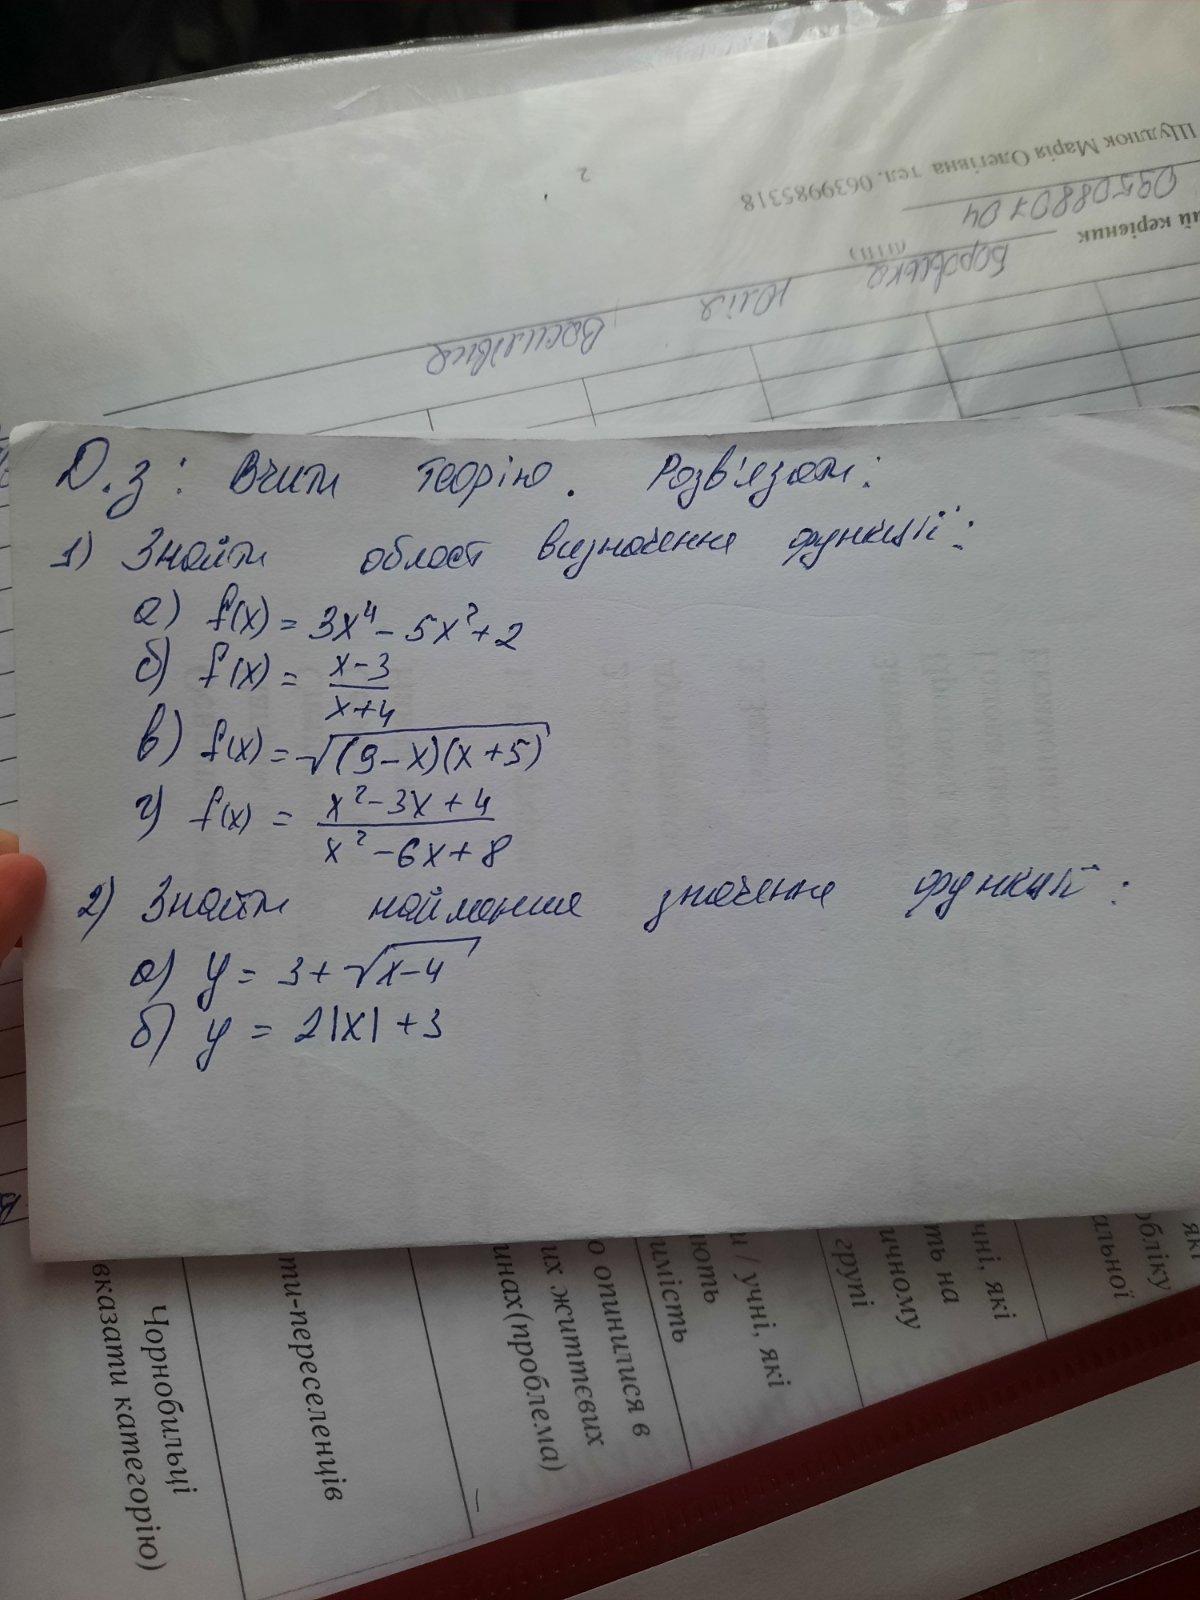 Щудлюк Марія Олегівна тел. 0639985318
0950880704
ий керівник
(ПІП)
Юлія
Василівна
2
Д.з: Вчити теорію. Розв'язати:
1) Знайти област визначення функції:
а) f(x) = 3x⁴ - 5x² + 2
б) f(x) = (x-3)/(x+4)
в) f(x) = √((9-x)(x+5))
г) f(x) = (x²-3x+4)/(x²-6x+8)
2) Знайти найменше значення функції:
а) y = 3 + √(x-4)
б) y = 2|x| + 3
Чорнобильці
вказати категорію)
ти-переселенців
о опинилися в
их життєвих
инах(проблема)
и / учні, які
ють
имість
чні, які
ть на
ичному
групі
які
обліку
альної